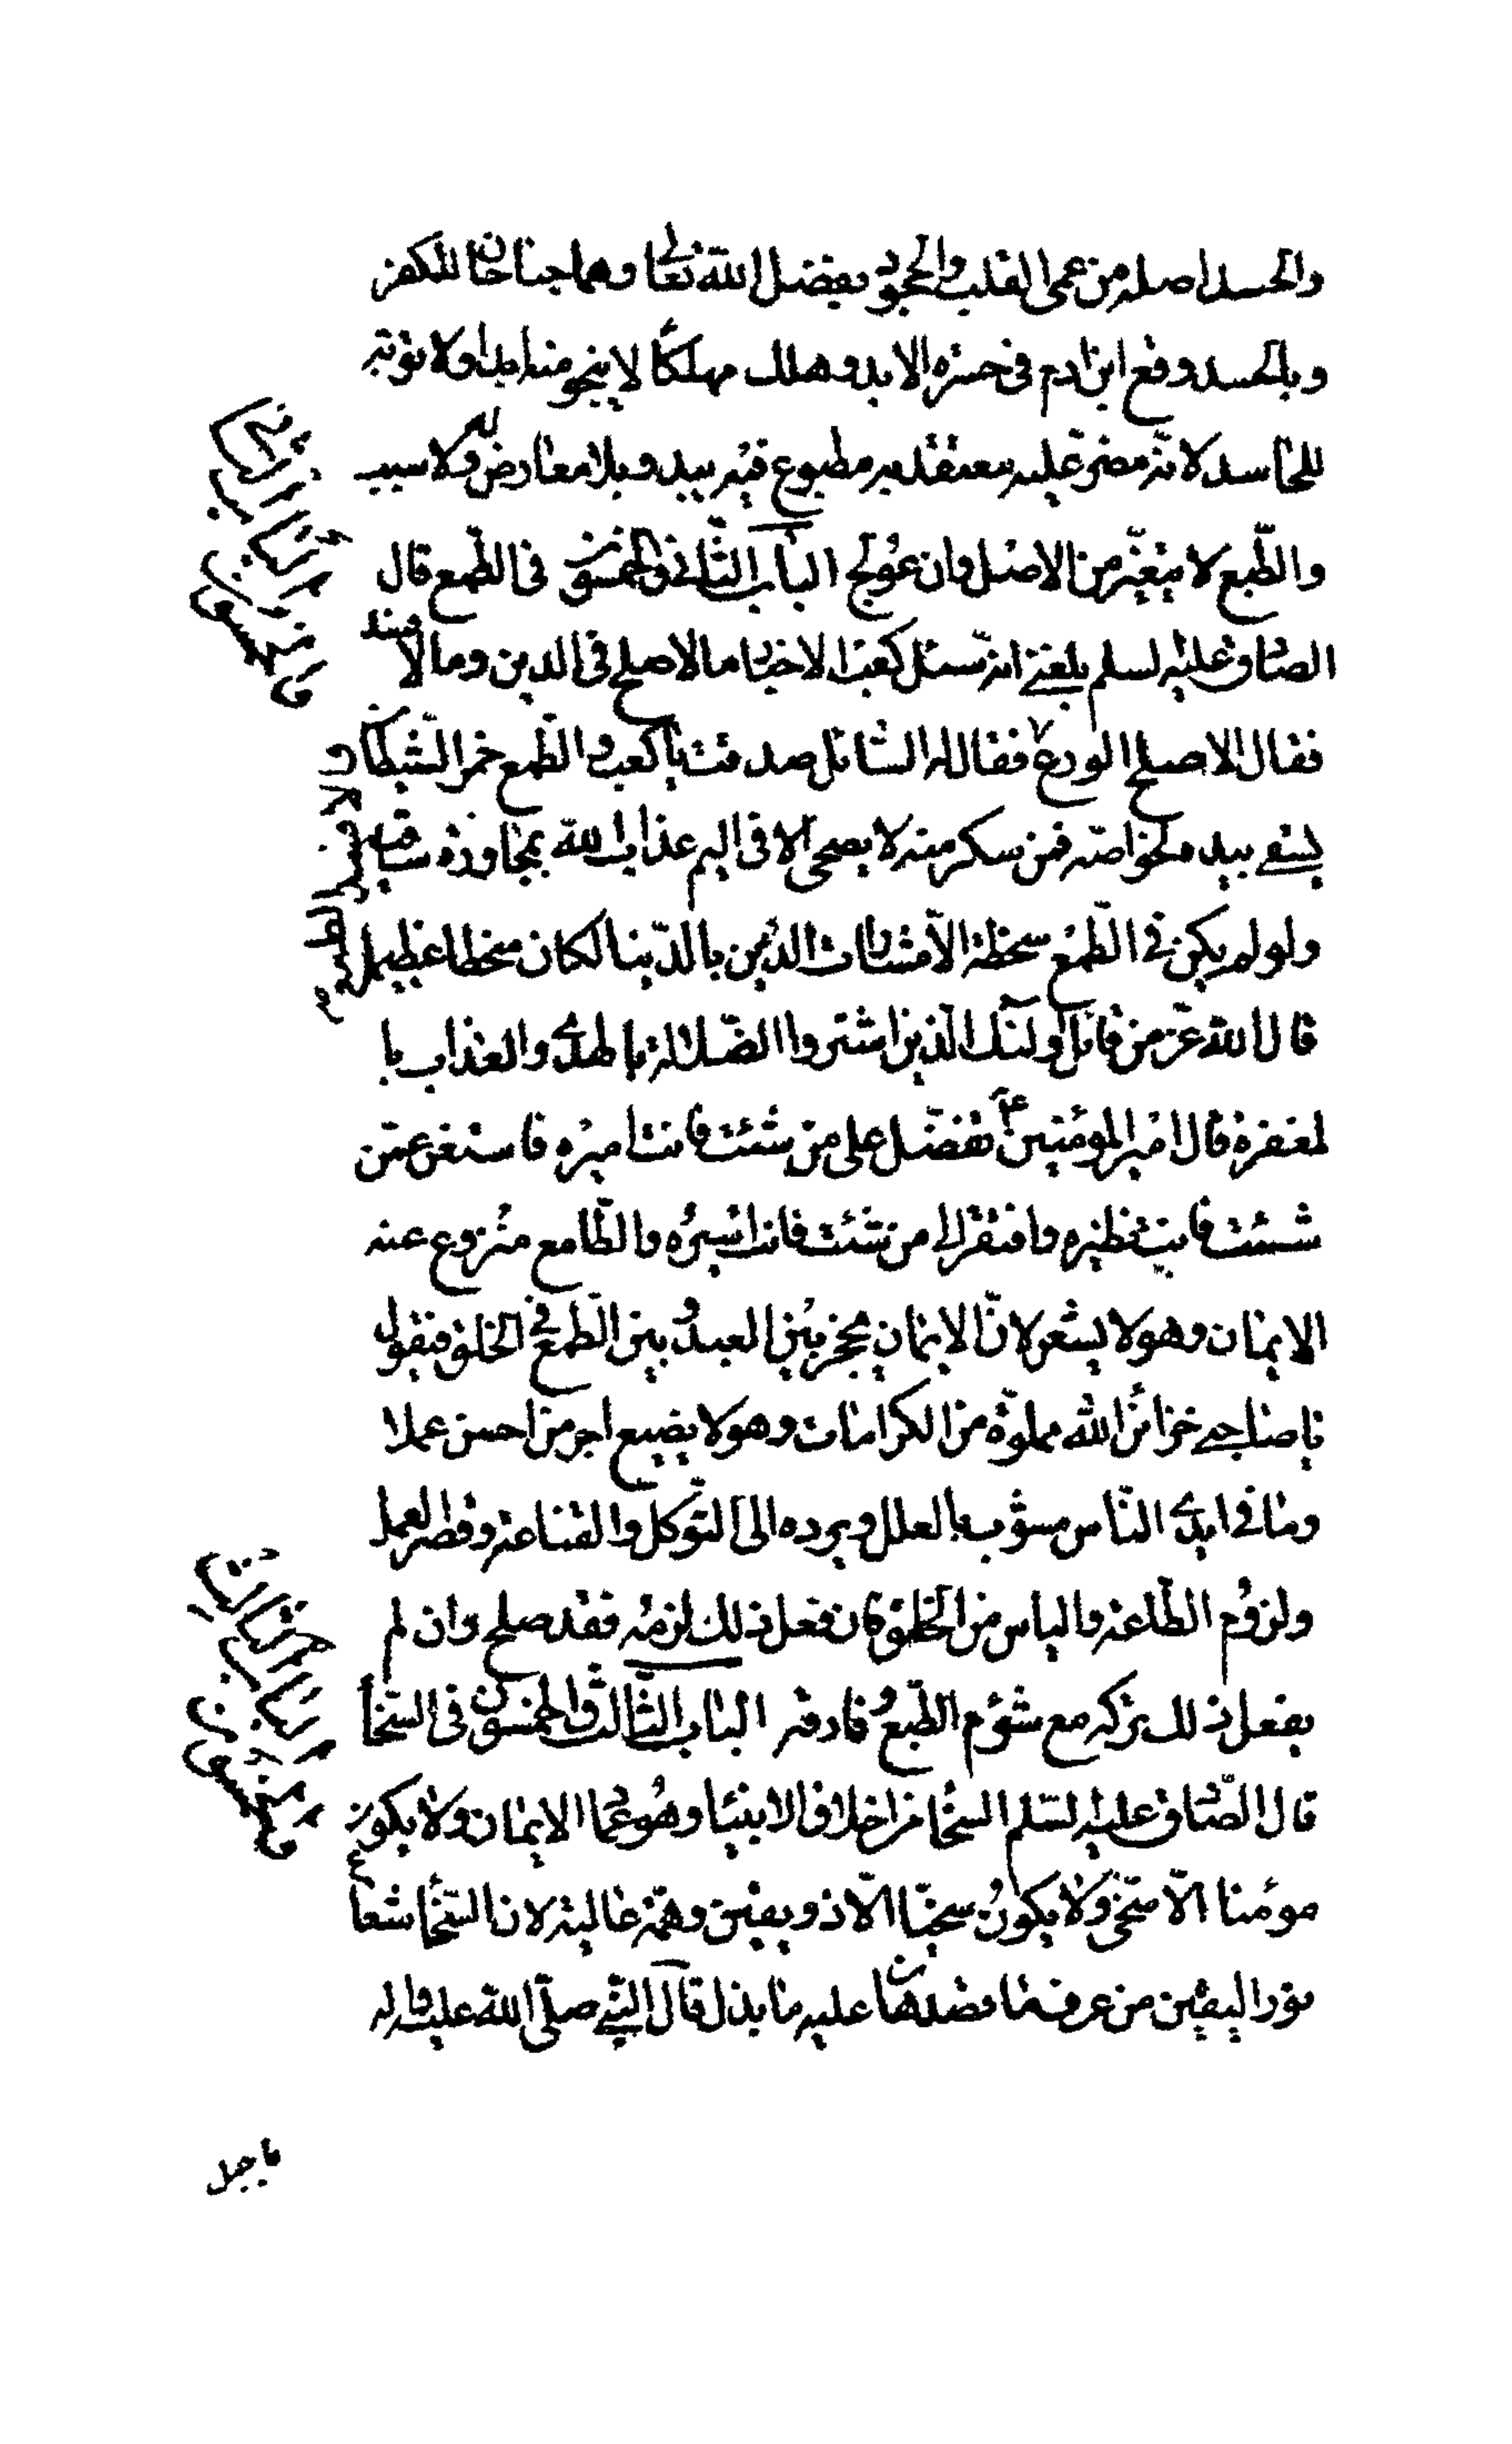 والحسد اصله من عمى القلب والجحود بفضل الله تعالى وهما جناحان للكفر
وبالحسد وقع ابن ادم في حسرة الابد وهلك مهلكا لا ينجو منه ابدا ولا توبة
للحاسد لانه مصر عليه معتقد به مطبوع فيه يبدو بلا معارض له ولا سبب
والطبع لا يتغير من الاصل وان عولج الباب الثاني والخمسون في الطمع قال
الصادق عليه لسلم بلغني انه سئل كعب الاحبار ما الاصلح في الدين وما الافسد
فقال الاصلح الورع فقال له السائل صدقت يا كعب والطمع خمر الشيطان و
يستقي بيده لخواصه فمن سكر منه لا يصحى الا في اليم عذاب الله بمجاورة ساقيه
ولو لم يكن في الطمع سخطة الا مشارات الدين بالدنيا لكان سخطا عظيما
قال الله عز من قائل اولئك الذين اشتروا الضلالة بالهدى والعذاب با
لمغفرة قال امير المؤمنين ع تفضل على من شئت فانت اميره فاستغن عمن
شئت فانت نظيره وافتقر الى من شئت فانت اسيره والطامع منزوع عنه
الايمان وهو لا يشعر لان الايمان يحجز بين العبد وبين الطمع في الخلق فيقول
يا صاحبي خزائن الله مملوة من الكرامات وهو لا يضيع اجر من احسن عملا
وما في ايدي الناس مشوب بالعلل ويرده الى التوكل والقناعة وقصر العمل
ولزوم الطاعة والياس من الخلق فان فعل ذلك لزمه فقد صلح وان لم
يفعل ذلك تركه مع شؤم الطبع فارقه الباب الثالث والخمسون في السخا
قال الصادق عليه لسلم السخا من اخلاق الانبيا وهو عما الايمان ولا يكون
مؤمنا الا سخي ولا يكون سخيا الا ذو يقين وهمة عالية لان السخا شعاع
نور اليقين من عرف ما قصد هان عليه ما بذل قال النبي صلى الله عليه واله
ما جبل